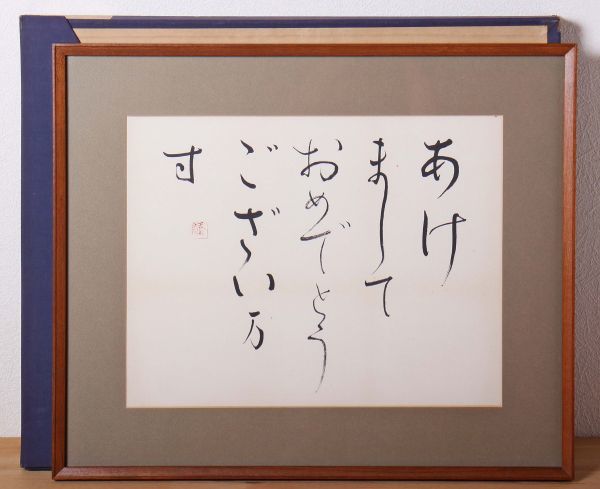 あけ
まして
おめでとう
ござい万
寸